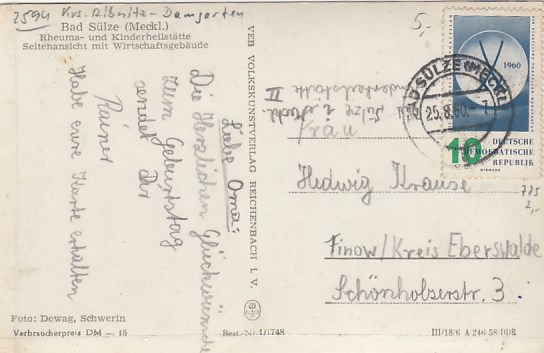 2594 Krs. Ribnitz-Damgarten
Bad Sülze (Meckl.)
Rheuma- und Kinderheilstätte
Seitenansicht mit Wirtschaftsgebäude
Liebe Oma!
Die Herzlichen Glückwünsche
zum Geburtstag
sendet Dir
Rainer
Habe eure Karte erhalten
Foto: Dewag, Schwerin
Verbraucherpreis DM -. 15
Best.-Nr. 1/1748
VEB VOLKSKUNSTVERLAG REICHENBACH I. V.
5,-
1960
BAD SÜLZE (MECKL)
25.8.60.-7
10
DEUTSCHE
DEMOKRATISCHE
REPUBLIK
Bad Sülze i. Meckl.
Kinderheilstätte II
Frau
Hedwig Krause
Finow/Kreis Eberswalde
Schönholzerstr. 3.
725
2,-
III/18/6 A 246/58/DDR